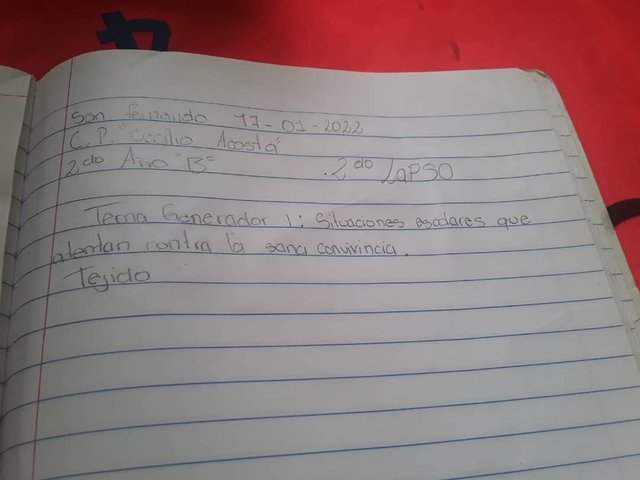 San Fernando 17-01-2022
C.P. "Cecilio Acosta"
2do Año "B" . 2do Lapso
Tema Generador 1: Situaciones escolares que
atentan contra la sana convivincia.
Tejido